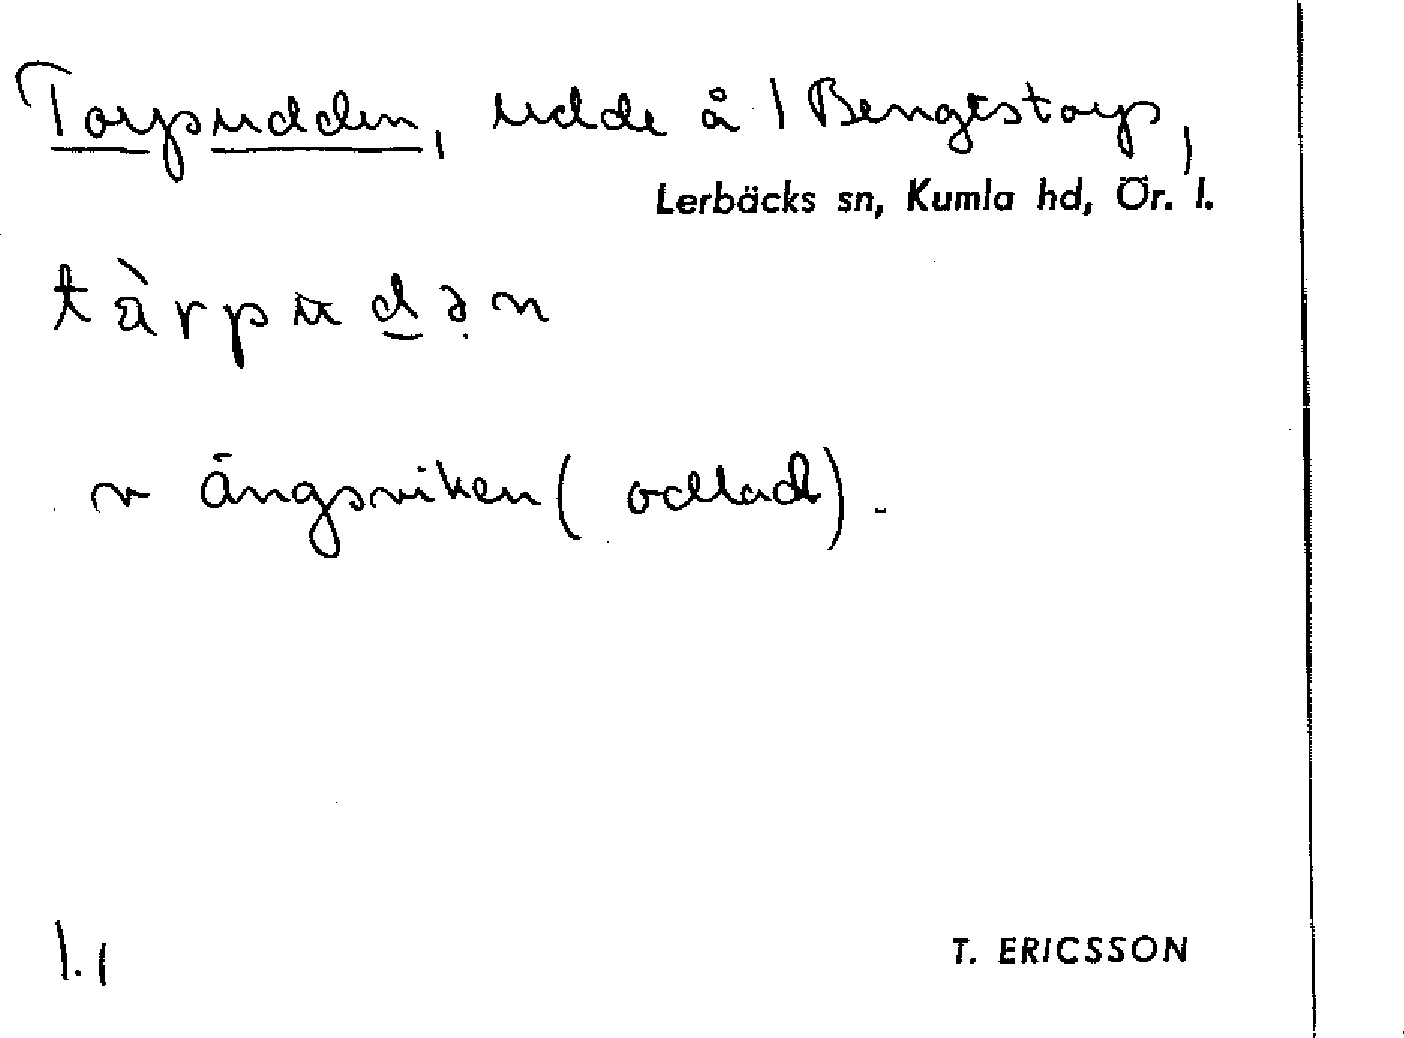 Torpudden, udde å 1 Bengtstorp,
Lerbäcks sn, Kumla hd, Ör. l.
tàrpudən
v Ängsviken (odlad).
1.1
T. ERICSSON